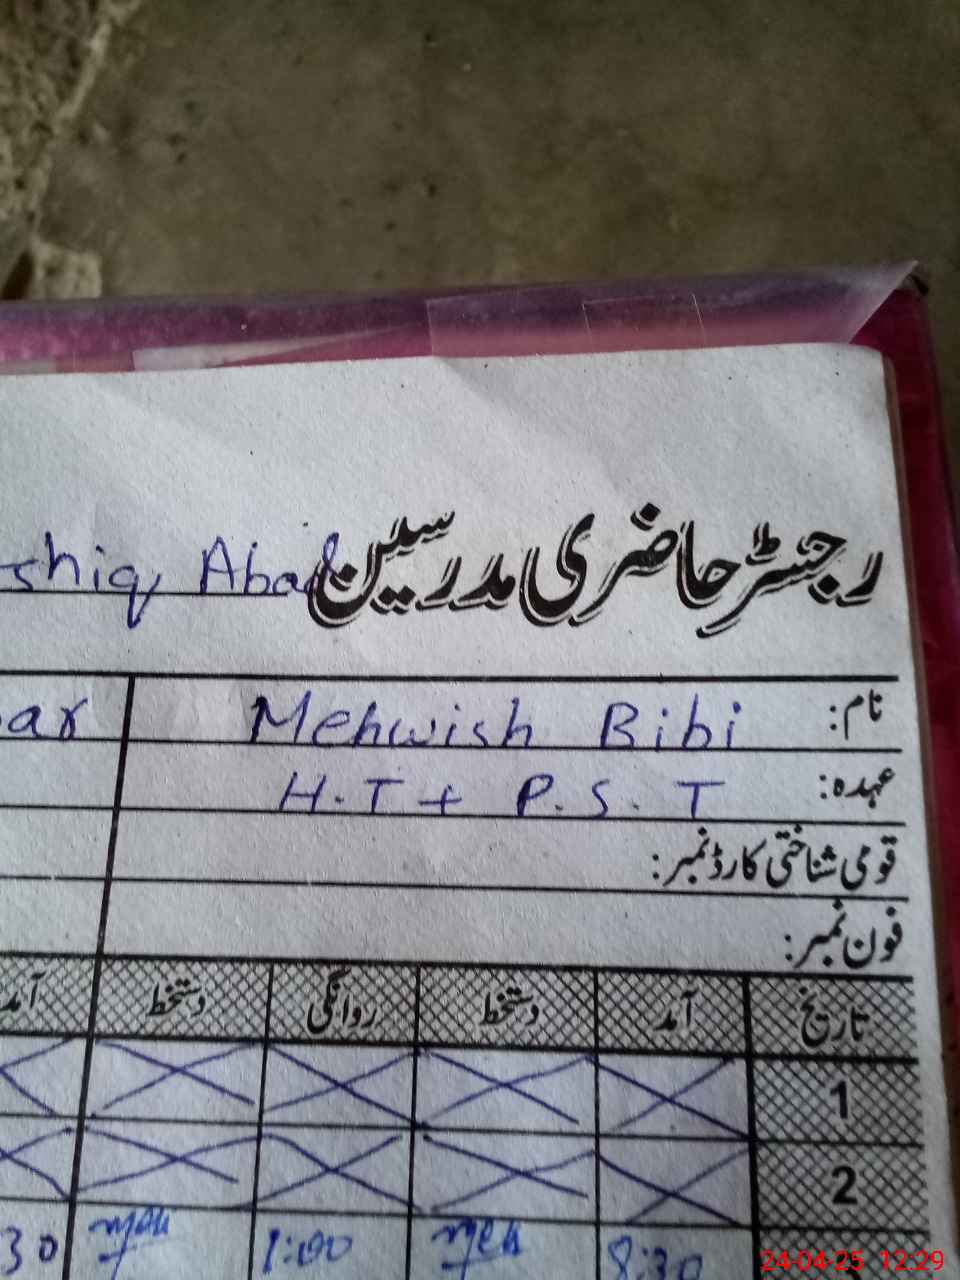 رجسٹر حاضری مدرسین shiq Abad
نام: Mehwish Bibi
عہدہ: H.T + P.S.T
قومی شناختی کارڈ نمبر:
فون نمبر:
تاریخ آمد دستخط روانگی دستخط آمد
1
2
8:30 Meh 1:00 Meh 30
24-04-25 12:29